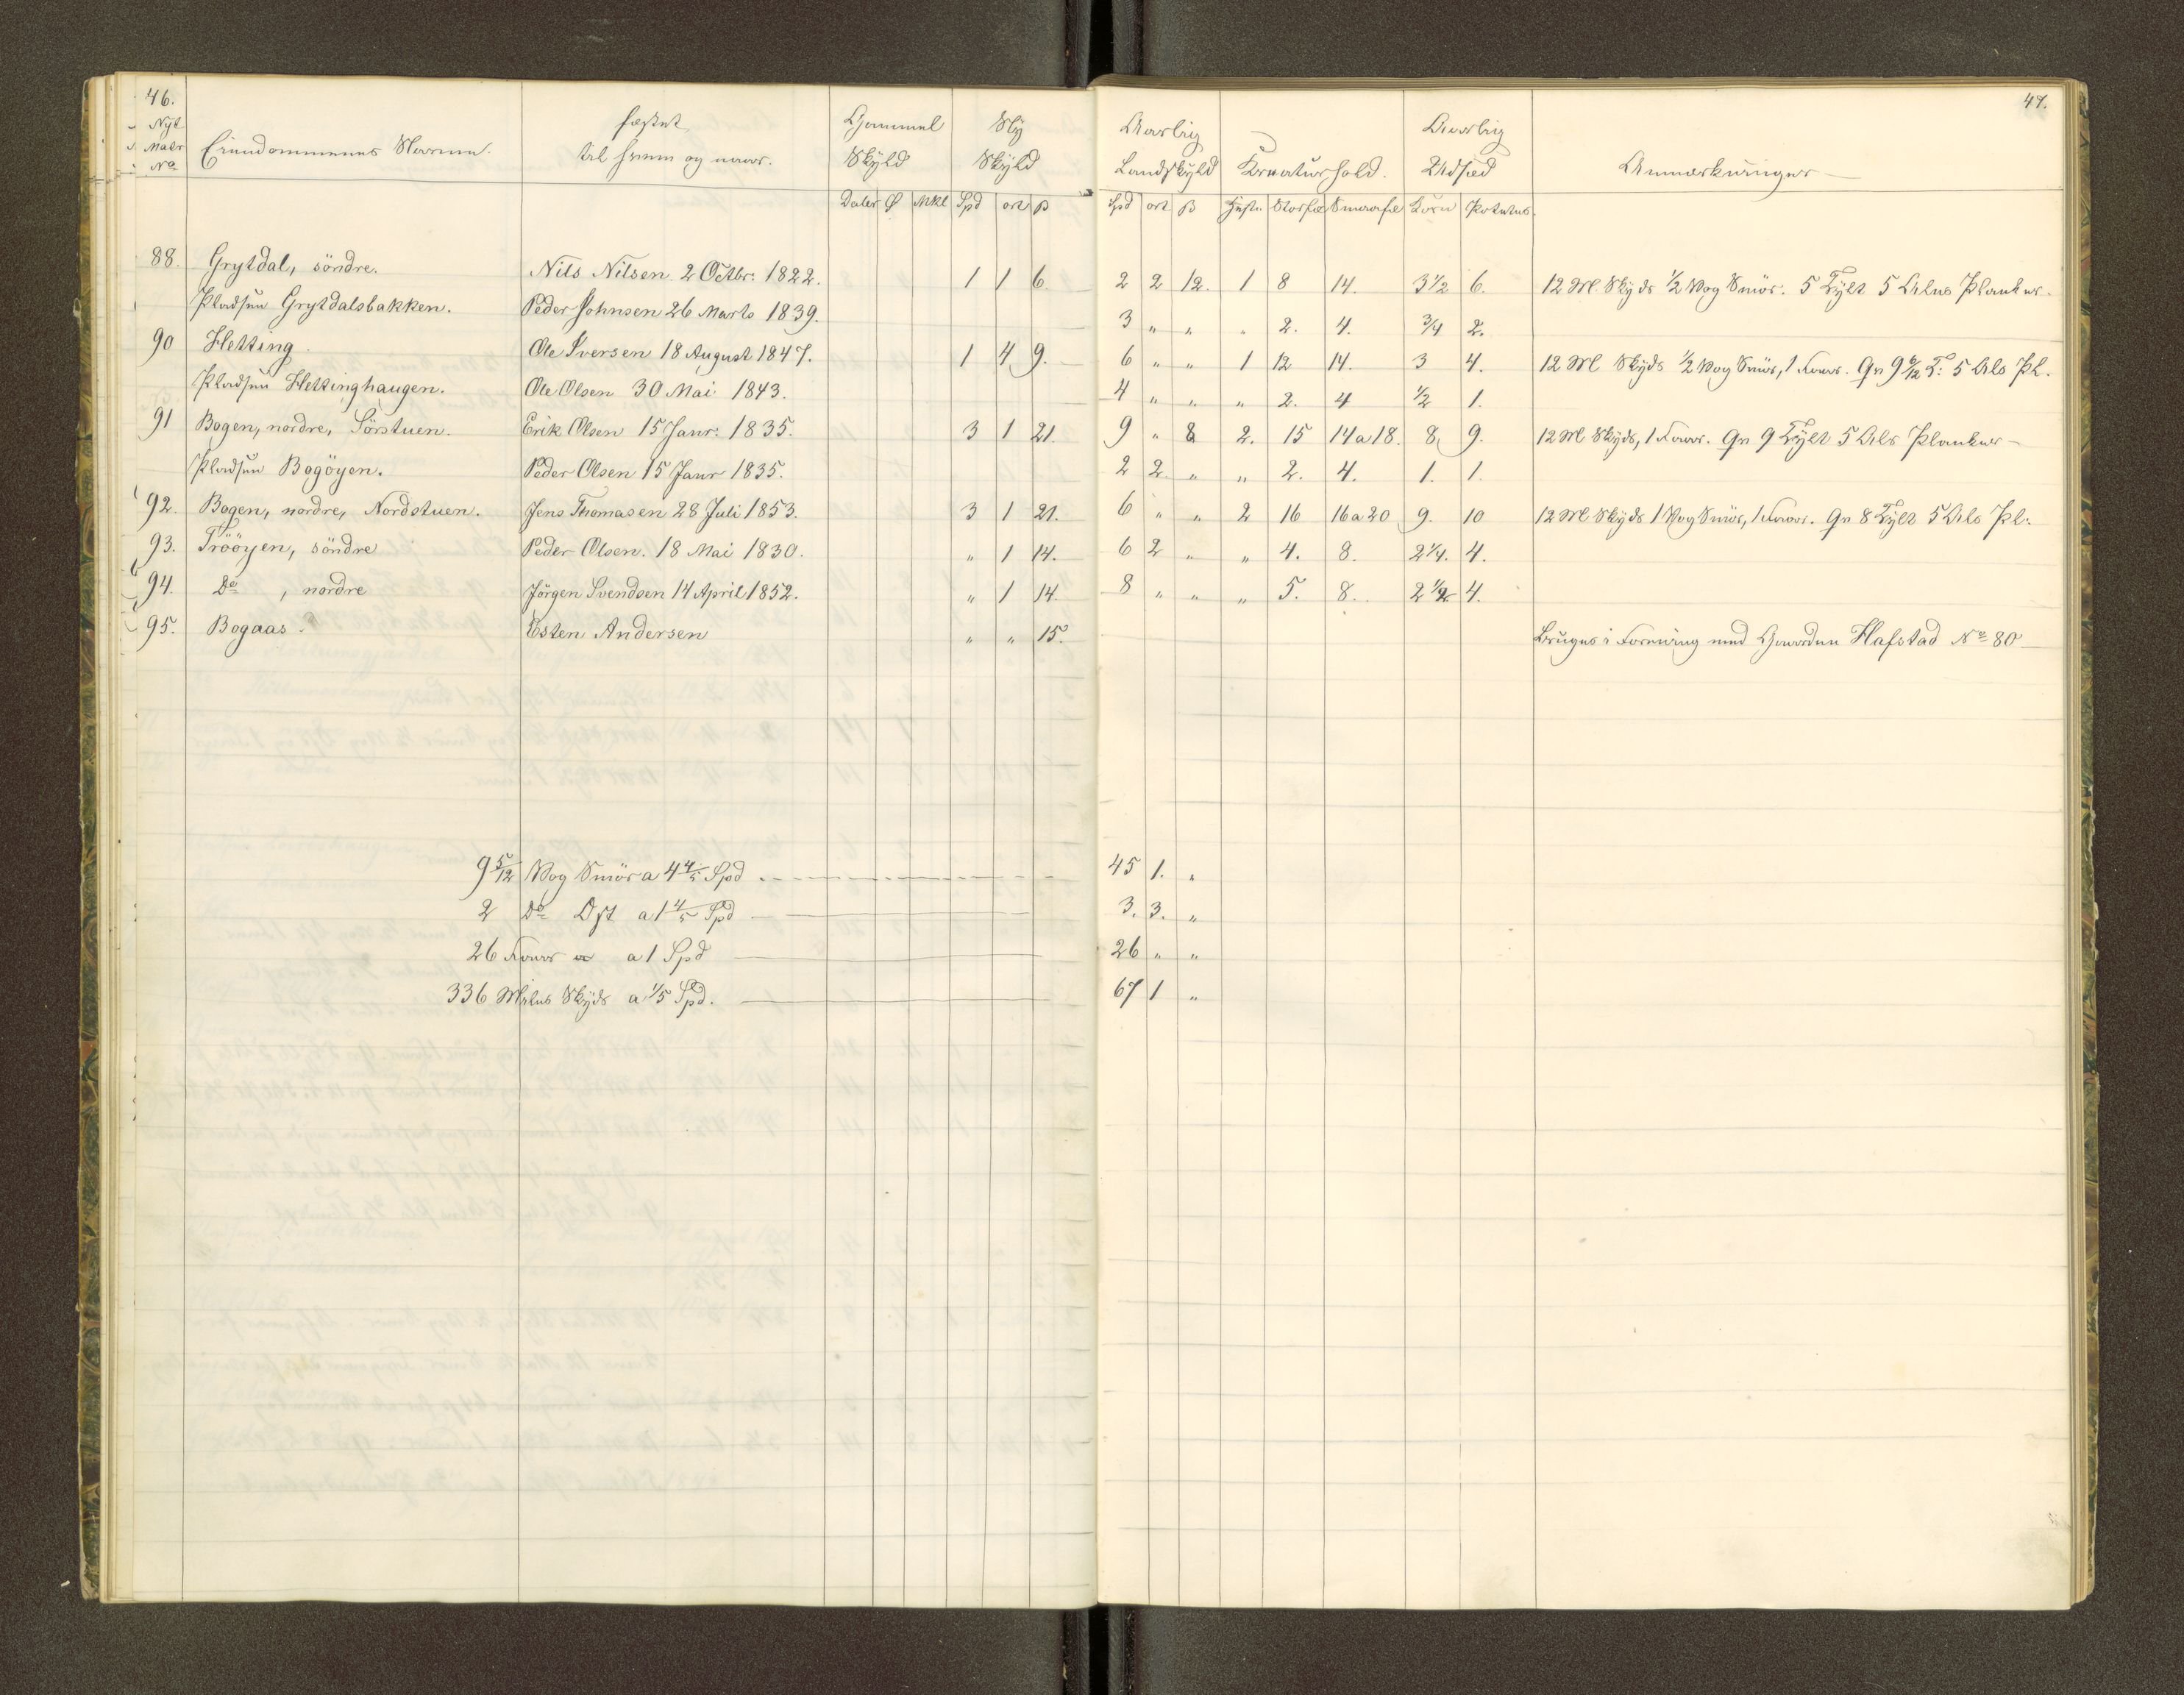 46.
47.
Nyt Matr No
Eiendommenes Navne.
fæstet til hvem og naar.
Gammel Skyld
Ny Skyld
Aarlig Landskyld
Kreaturhold.
Aarlig Udsæd
Anmærkninger
Daler Ø Mkl Spd ort β Spd ort β Heste Storfæ Smaafæ Korn Poteter.
88. Grytdal, söndre. Nils Nilsen 2 Octbr: 1822. 1 1 6. 2 2 12. 1 8 14. 3 1/2 6. 12 Ml Skyds 1/2 Vog Smör. 5 Tylt 5 Alns Planker.
Pladsen Grytdalsbakken. Peder Johnsen 26 Marts 1839. 3 " " " 2. 4. 3/4 2.
90 Hetting. Ole Iversen 18 August 1847. 1 4 9. 6 " " 1 12 14. 3 4. 12 Ml Skyds 1/2 Vog Smör, 1 Faar. 9 6/12 T: 5 Als Pl.
Pladsen Hettinghaugen. Ole Olsen 30 Mai 1843. 4 " " " 2. 4 1/2 1.
91 Bogen, nordre, Sörstuen. Erik Olsen 15 Janr: 1835. 3 1 21. 9 " 8 2. 15 14 a 18. 8 9. 12 Ml Skyds, 1 Faar. 9 Tylt 5 Als Planker
Pladsen Bogöyen. Peder Olsen 15 Janr 1835. 2 2 " " 2. 4. 1. 1.
92. Bogen, nordre, Nordstuen. Jens Thomasen 28 Juli 1853. 3 1 21. 6 " " 2 16 16 a 20 9. 10 12 Ml Skyds 1 Vog Smör, 1 Faar. 8 Tylt 5 Als Pl.
93. Trööyen, söndre Peder Olsen. 18 Mai 1830. " 1 14. 6 2 " " 4. 8. 2 1/4. 4.
94. Do , nordre Jörgen Svendsen 14 April 1852. " 1 14. 8 " " " 5. 8. 2 1/2 4.
95. Bogaas. Esten Andersen " " 15. Bruges i Forening med Gaarden Hafstad No 80
9 5/12 Vog Smör a 4 4/5 Spd 45 1. "
2 Do Ost a 1 4/5 Spd 3. 3. "
26 Faar a 1 Spd 26 " "
336 Miles Skyds a 1/5 Spd. 67 1 "